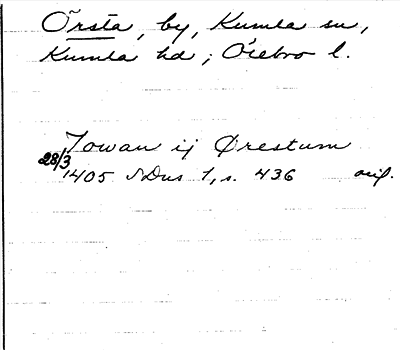 Örsta, by, Kumla sn,
Kumla hd; Örebro l.
Jowan ij Ørestum
28/3 1405 SDns 1, s. 436 orig.